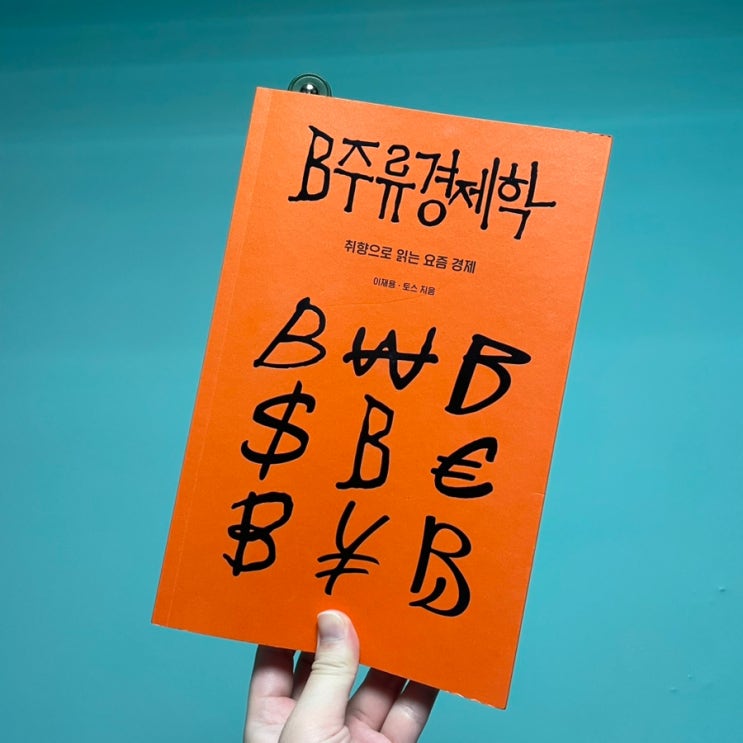 B주류경제학
취향으로 읽는 요즘 경제
이재용 · 토스 지음
B ₩ B
$ B €
B ¥ B